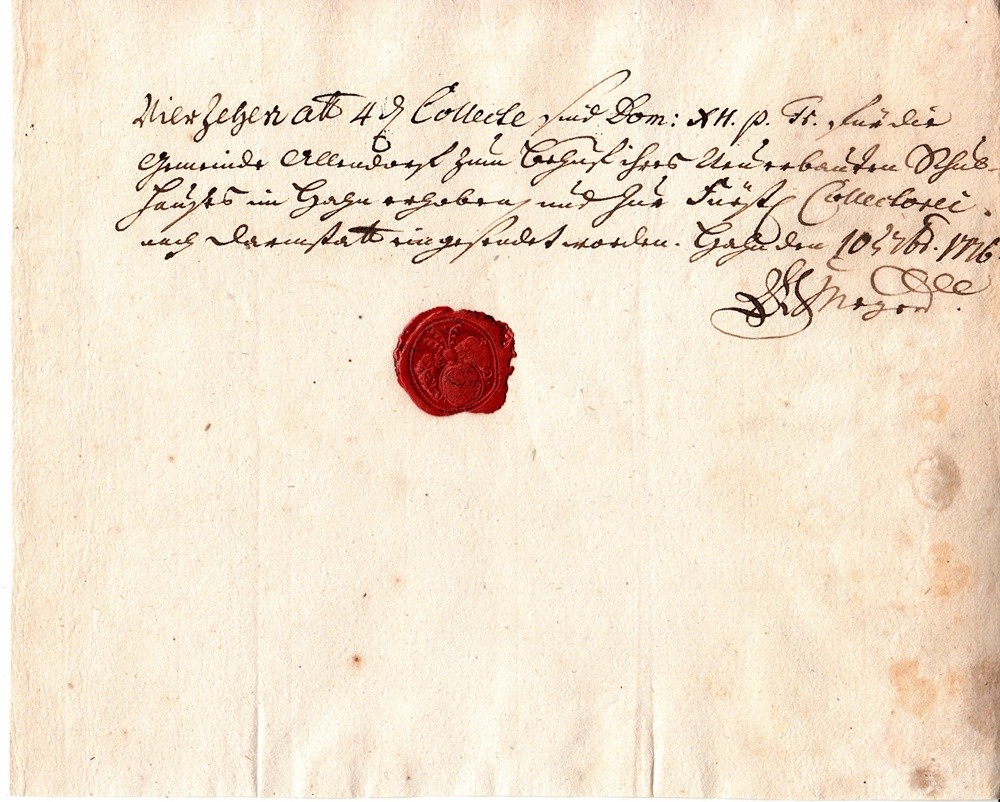 Vierzehen alb 4 ₰ Collecte sind Dom: XII. p. Tr. für die
Gemeinde Allendorf zum Behuf ihres Neuerbauten Schul-
hauses im Hahn erhoben, und zur Fürstl Collectorei
nach Darmstatt eingesendet worden. Hahn den 10 1776.
Meyer